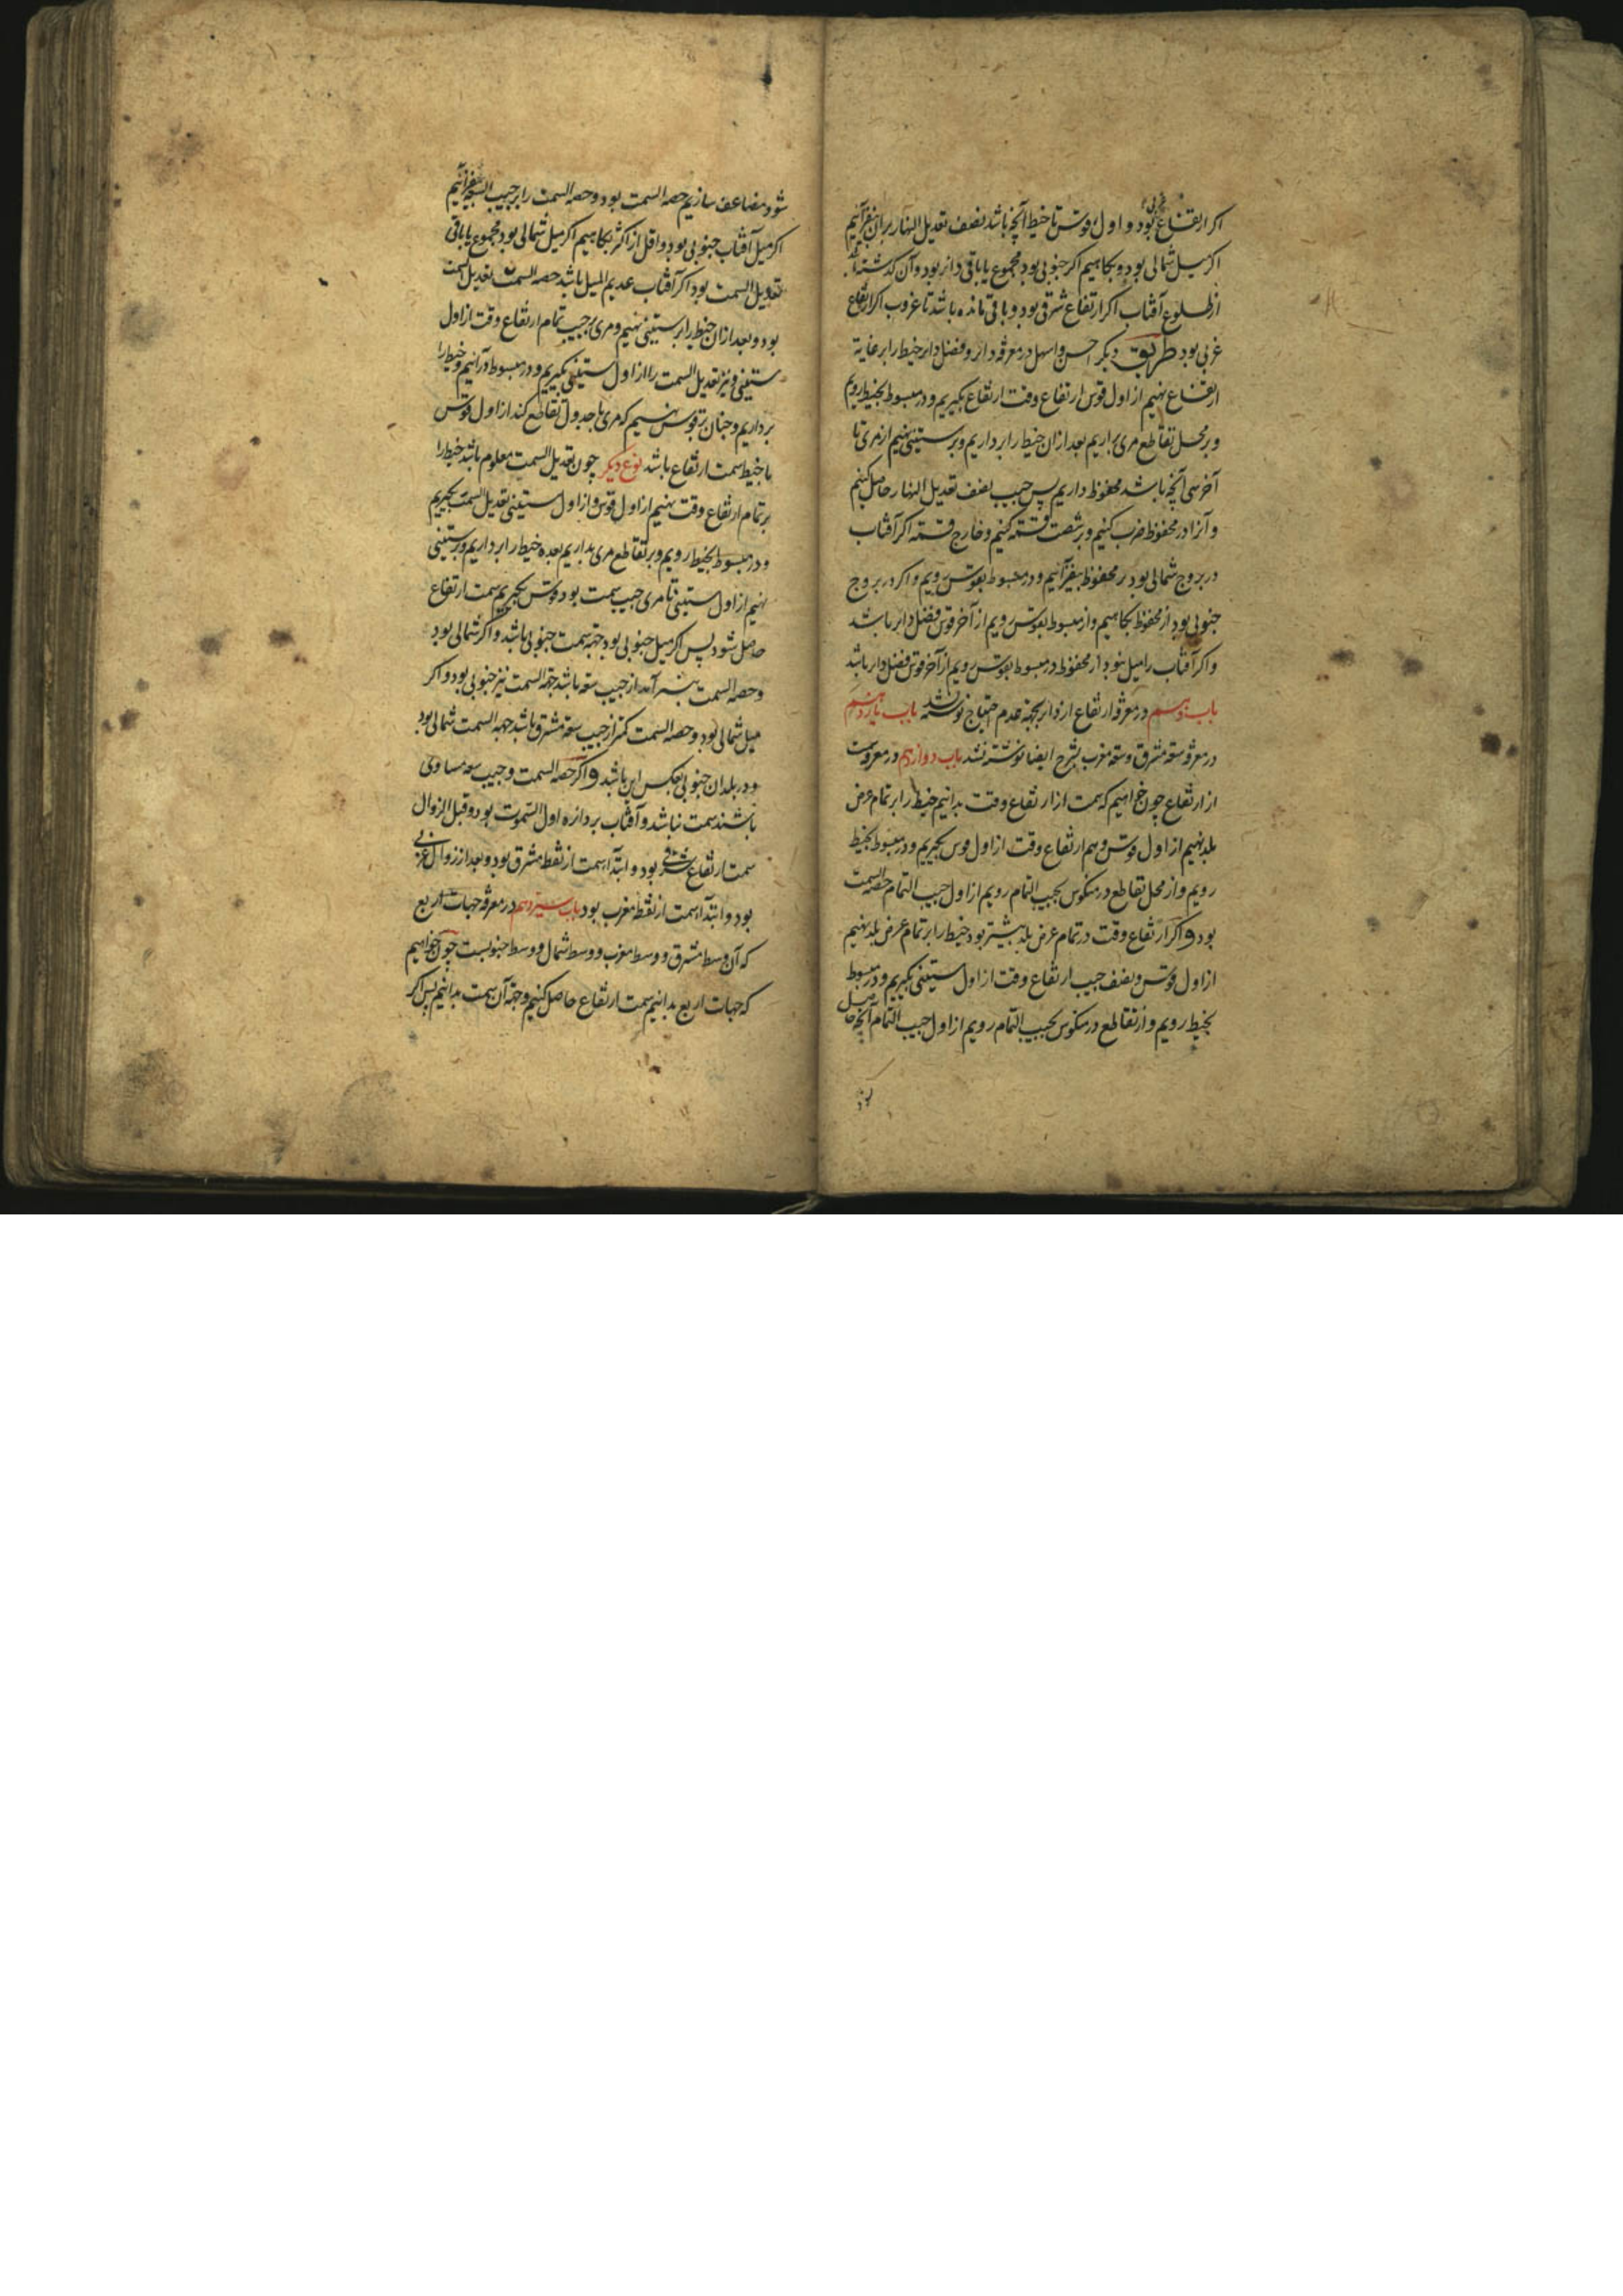 اکر ارتفاع غربی بود و اول قوس تا خیط آنچه باشد نصف تعدیل النهار بران بیفزائیم
اکر میل شمالی بود و بکاهیم اکر جنوبی بود مجموع یا باقی دائر بود و آن کذشته
از طلوع آفتاب اکر ارتفاع شرقی بود و باقی مانده باشد تا غروب اکر ارتفاع
غربی بود طریق دیکر احسن و اسهل در معرفه دائر و فضل دایر خیط را بر غایة
ارتفاع نهیم از اول قوس ارتفاع وقت ارتفاع بکیریم و در مبسوط بخیط رویم
و بر محل تقاطع مری براریم بعد ازان خیط را برداریم و بر ستینی نهیم از مری تا
آخر سی آنچه باشد محفوظ داریم پس جیب نصف تعدیل النهار حاصل کنیم
و آنرا در محفوظ ضرب کنیم و بر شصت قسمه کنیم و خارج قسمه اکر آفتاب
در بروج شمالی بود بر محفوظ بیفزائیم و در مبسوط بقوس رویم و اکر در بروج
جنوبی بود از محفوظ بکاهیم و از مبسوط بقوس رویم از آخر قوس فضل دایر باشد
و اکر آفتاب را میل نبود از محفوظ در مبسوط بقوس رویم از آخر قوس فضل دایر باشد
باب دهم در معرفة ارتفاع از دایر بجهة عدم احتیاج نوشته نشد باب یازدهم
در معرفة سعة مشرق و سعة مغرب بشرح ایضا نوشته نشد باب دوازدهم در معرفة سمت
از ارتفاع چون خواهیم که سمت از ارتفاع وقت بدانیم خیط را بر تمام عرض
بلد نهیم از اول قوس و هم ارتفاع وقت از اول قوس بکیریم و در مبسوط بخیط
رویم و از محل تقاطع در منکوس بجیب التمام رویم از اول جیب التمام حصه السمت
بود و اکر ارتفاع وقت در تمام عرض بلد بیشتر بود خیط را بر تمام عرض بلد نهیم
از اول قوس و نصف جیب ارتفاع وقت از اول ستینی بکیریم و در مبسوط
بخیط رویم و از تقاطع در منکوس بجیب التمام رویم از اول جیب التمام آنچه حاصل
شود مضاعف سازیم حصه السمت بود و حصه السمت را بر جیب السعه بیفزائیم
اکر میل آفتاب جنوبی بود و اقل از اکثر بکاهیم اکر میل شمالی بود مجموع یا باقی
تعدیل السمت بود اکر آفتاب عدیم المیل باشد حصه السمت تعدیل السمت
بود و بعد ازان خیط را بر ستینی نهیم و مری بر جیب تمام ارتفاع وقت از اول
ستینی و نیز تعدیل السمت را از اول ستینی بکیریم و در مبسوط درآئیم و خیط را
برداریم و چنان بر قوس نهیم که مری با جدول تقاطع کند از اول قوس
تا خیط سمت ارتفاع باشد نوع دیکر چون تعدیل السمت معلوم باشد خیط را
بر تمام ارتفاع وقت نهیم از اول قوس و از اول ستینی تعدیل السمت بکیریم
و در مبسوط بخیط رویم و بر تقاطع مری بداریم بعده خیط را برداریم و بر ستینی
نهیم از اول ستینی تا مری جیب سمت بود قوس بکیریم سمت ارتفاع
حاصل شود پس اکر میل جنوبی بود جهة سمت جنوبی باشد و اکر شمالی بود
و حصه السمت از جیب سعه باشد جهة السمت نیز جنوبی بود و اکر
میل شمالی بود و حصه السمت کمتر از جیب سعة مشرق باشد جهة السمت شمالی بود
و در بلدان جنوبی بعکس این باشد و اکر حصه السمت و جیب سعه مساوی
باشند سمت نباشد و آفتاب بر دائره اول السموت بود و قبل الزوال
سمت ارتفاع شرقی بود و ابتدآ سمت از نقطه مشرق بود و بعد از زوال غربی
بود و ابتدآ سمت از نقطه مغرب بود باب سیزدهم در معرفة جهات اربع
که آن وسط مشرق و وسط مغرب و وسط شمال و وسط جنوبست چون خواهیم
که جهات اربع بدانیم سمت ارتفاع حاصل کنیم و جهة آن سمت بدانیم پس اکر